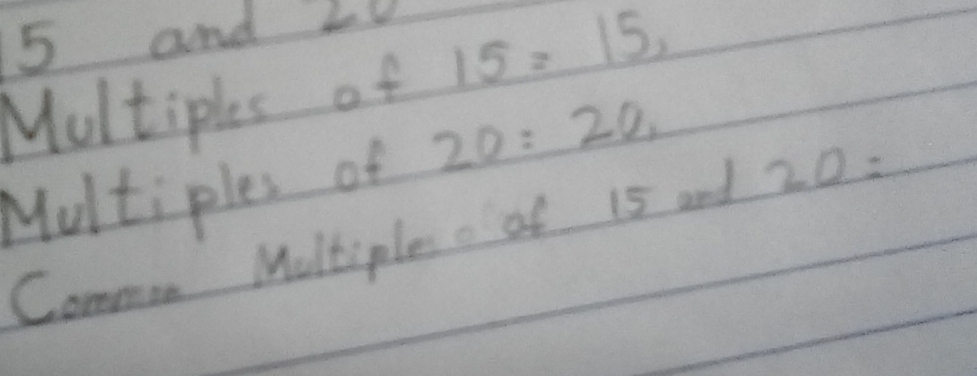 15 and 20
Multiples of 15 = 15,
Multiples of 20 = 20,
Common Multiples of 15 and 20 =